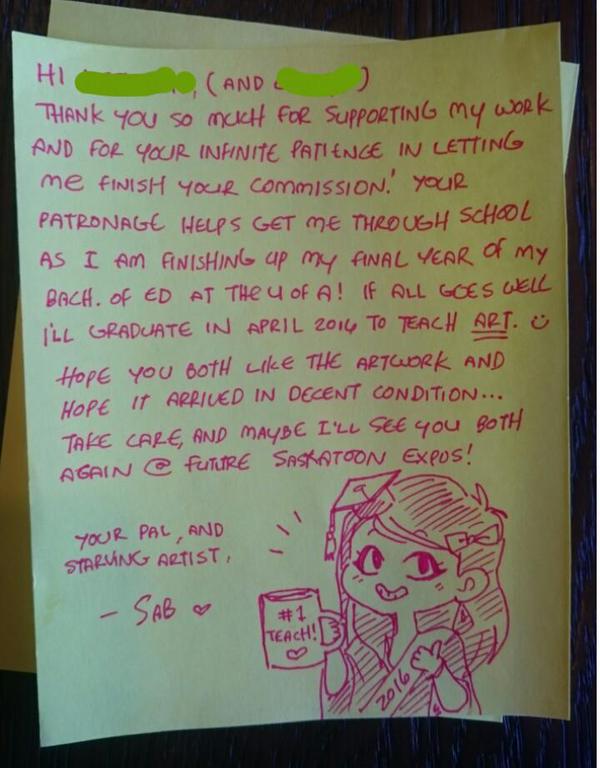 HI , (AND )
THANK YOU SO MUCH FOR SUPPORTING MY WORK
AND FOR YOUR INFINITE PATIENCE IN LETTING
ME FINISH YOUR COMMISSION! YOUR
PATRONAGE HELPS GET ME THROUGH SCHOOL
AS I AM FINISHING UP MY FINAL YEAR OF MY
BACH. OF ED AT THE U OF A! IF ALL GOES WELL
I'LL GRADUATE IN APRIL 2016 TO TEACH ART. ☺
HOPE YOU BOTH LIKE THE ARTWORK AND
HOPE IT ARRIVED IN DECENT CONDITION...
TAKE CARE, AND MAYBE I'LL SEE YOU BOTH
AGAIN @ FUTURE SASKATOON EXPOS!
YOUR PAL, AND
STARVING ARTIST,
- SAB ♡
#1
TEACH!
♡
2016